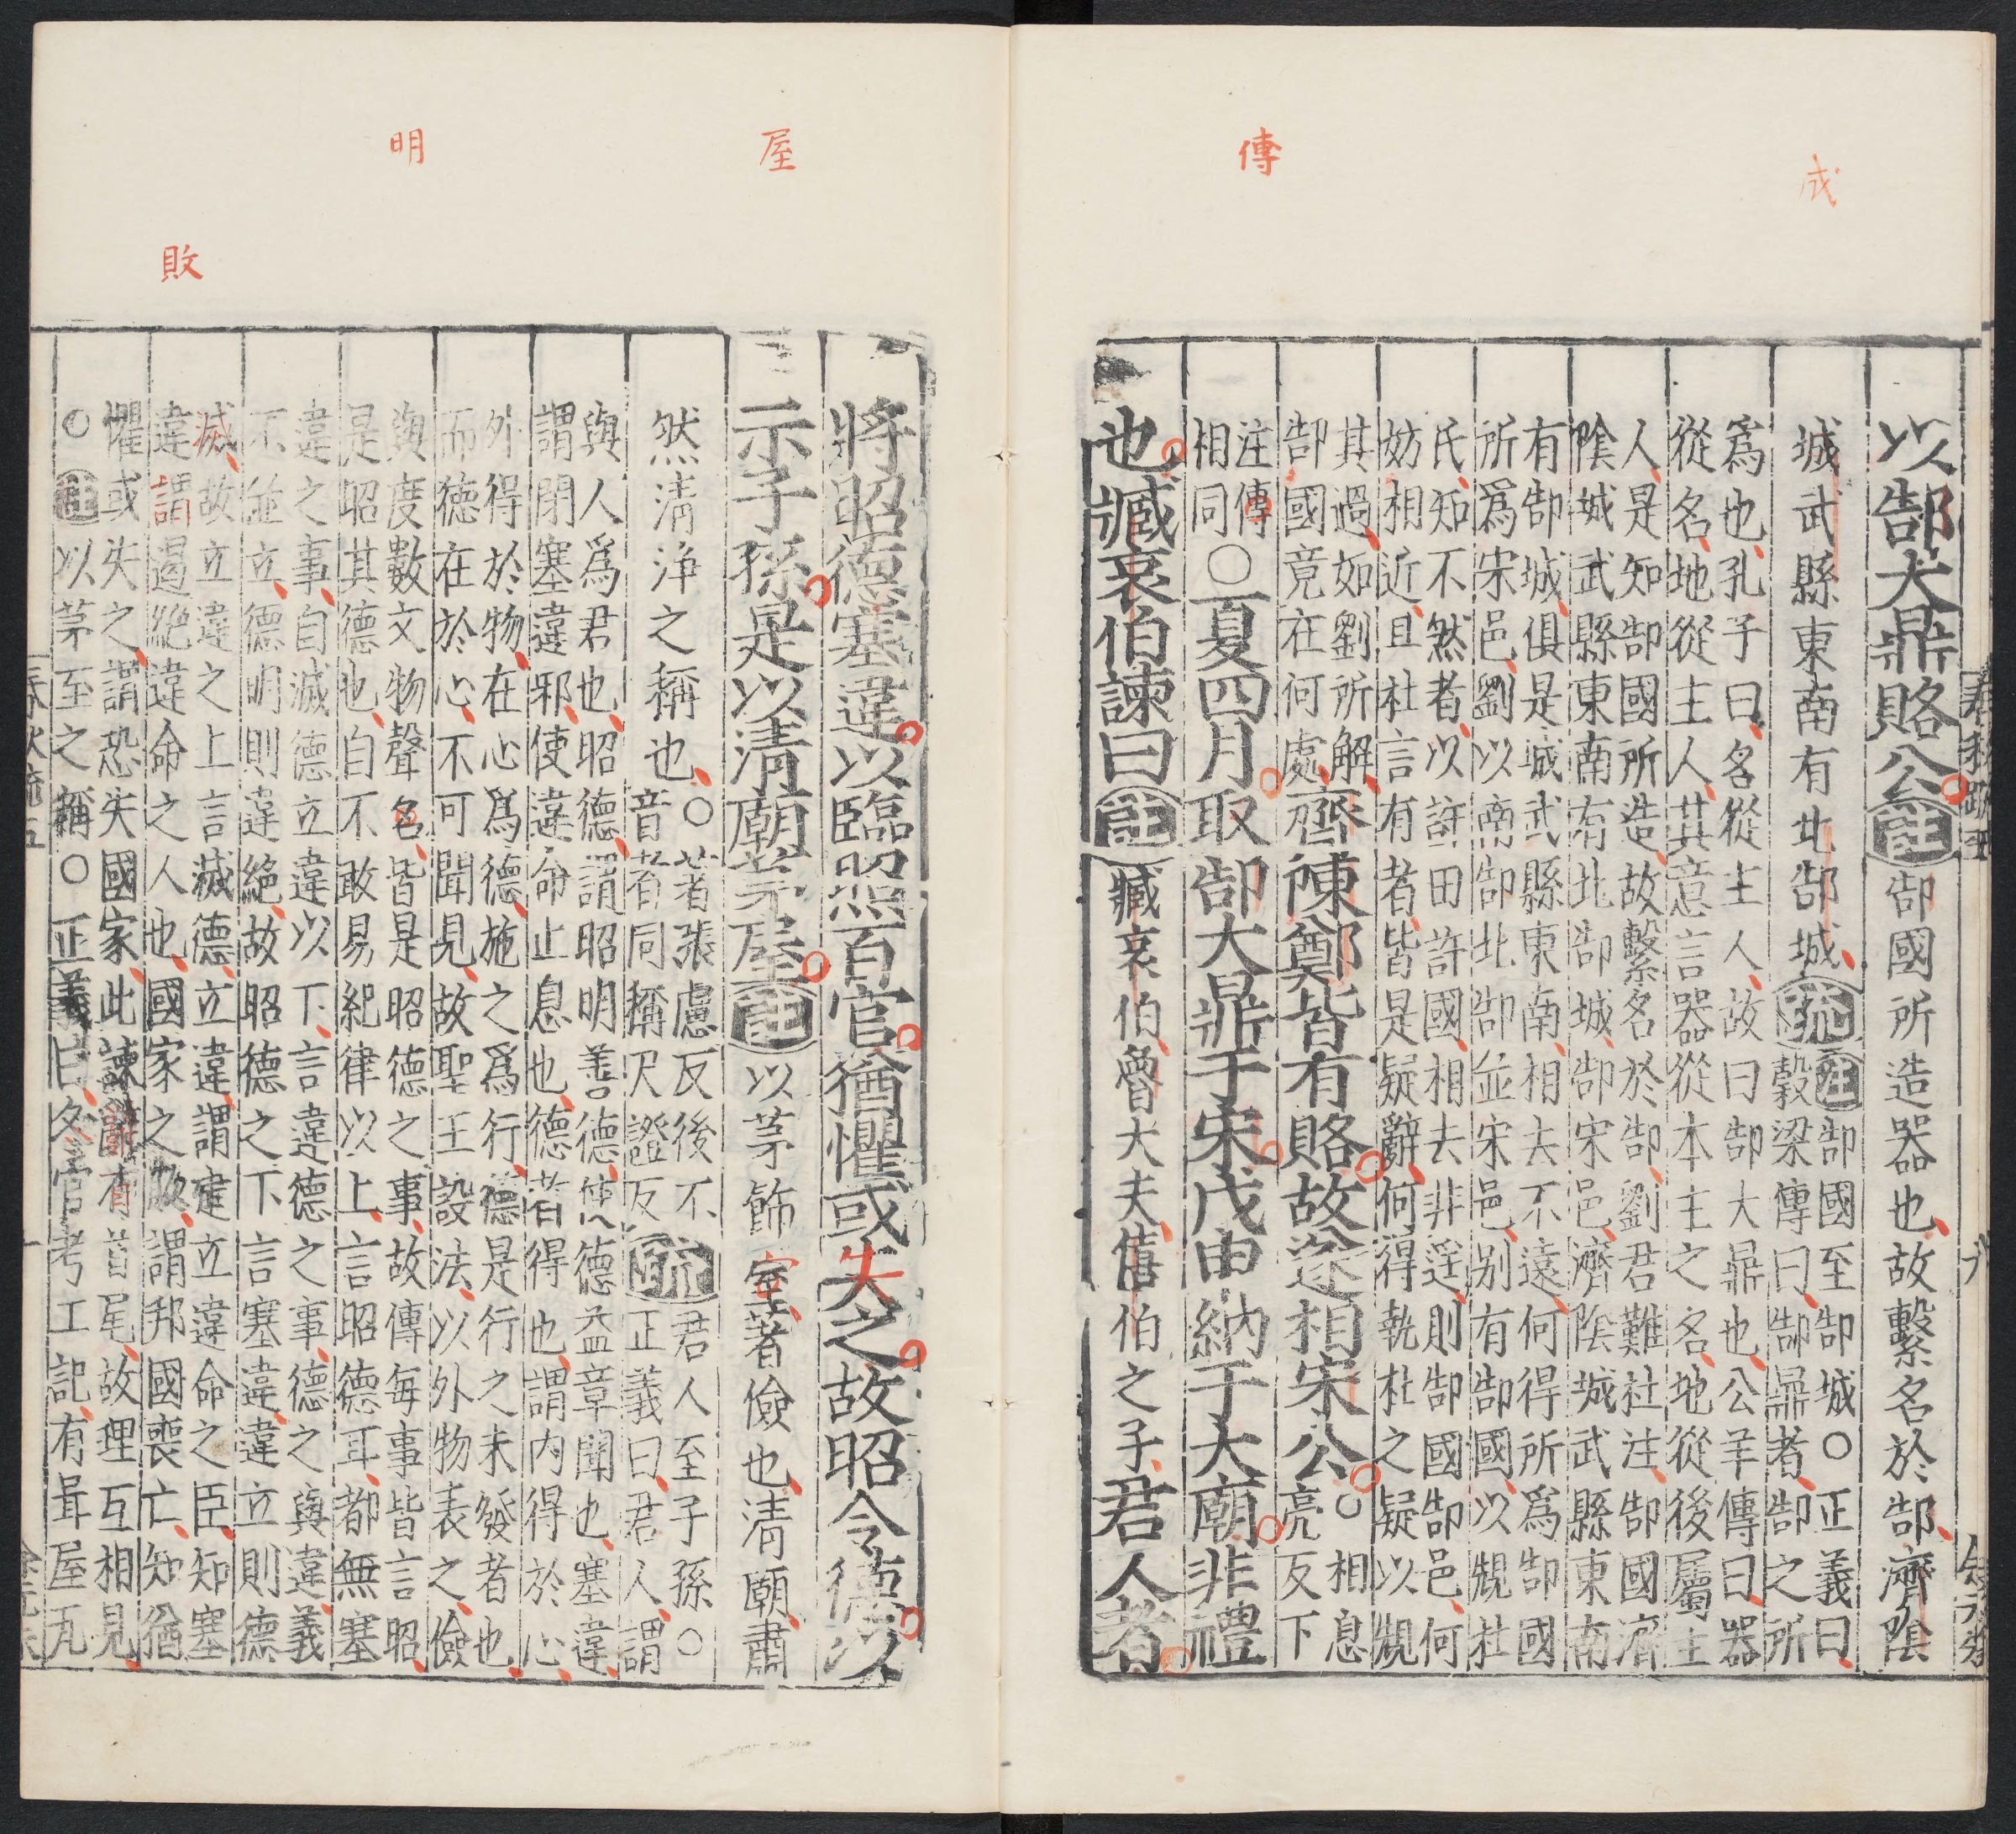 成
傳
以郜大鼎賂公註郜國所造器也故繫名於郜濟隂
城武縣東南有北郜城疏註郜國至郜城○正義曰
穀梁傳曰郜鼎者郜之所
爲也孔子曰名從主人故曰郜大鼎也公羊傳曰器
從名地從主人其意言器從本主之名地從後屬主
人是知郜國所造故繫名於郜劉君難杜注郜國濟
隂城武縣東南有北郜城郜宋邑濟隂城武縣東南
有郜城俱是城武縣東南相去不遠何得所爲郜國
所爲宋邑劉以南郜北郜並宋邑别有郜國以䂓杜
氏知不然者以許田許國相去非遥則郜國郜邑何
妨相近且杜言有者皆是疑辭何得執杜之疑以䂓
其過如劉所解
郜國竟在何處齊陳鄭皆有賂故遂相宋公○相息
亮反下
注傳
相同○夏四月取郜大鼎于宋戊申納于大廟非禮
也臧哀伯諫曰註臧哀伯魯大夫僖伯之子君人者
屋
明
敗
將昭德塞違以臨照百官猶懼或失之故昭令德以
示子孫是以清廟茅屋註以茅飾室著儉也清廟肅
然清浄之稱也○著張慮反後不
音者同稱尺證反疏君人至子孫○
正義曰君人謂
與人爲君也昭德謂昭明善德使德益章聞也塞違
謂閉塞違邪使違命止息也德者得也謂内得於心
外得於物在心爲德施之爲行德是行之未發者也
而德在於心不可聞見故聖王設法以外物表之儉
與度數文物聲名皆是昭德之事故傳每事皆言昭
是昭其德也自不敢易紀律以上言昭德耳都無塞
違之事自滅德立違以下言違德之事德之與違義
不並立德明則違絶故昭德之下言塞違違立則德
滅故立違之上言滅德立違謂建立違命之臣知塞
違謂遏絶違命之人也國家之敗謂邦國喪亡知猶
懼或失之謂恐失國家此諫辭有首尾故理互相見
○註以茅至之稱○正義曰冬官考工記有葺屋瓦